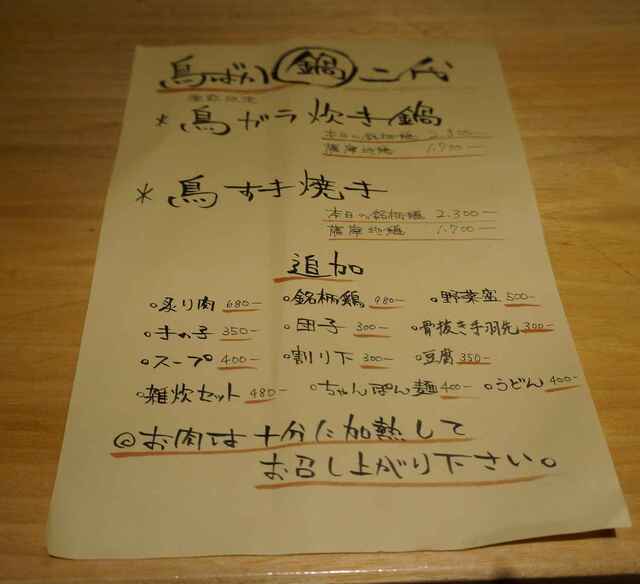 鳥ばか 鍋 二代
＊鳥ガラ炊き鍋
本日の銘柄鶏 2.300-
薩摩地鶏 1.700-
＊鳥すき焼き
本日の銘柄鶏 2.300-
薩摩地鶏 1.700-
追加
○炙り肉 680- ○銘柄鶏 980- ○野菜盛 500-
○きの子 350- ○団子 300- ○骨抜き手羽先 300-
○スープ 400- ○割り下 300- ○豆腐 350-
○雑炊セット 480- ○ちゃんぽん麺 400- ○うどん 400-
◎お肉は十分に加熱して
お召し上がり下さい。